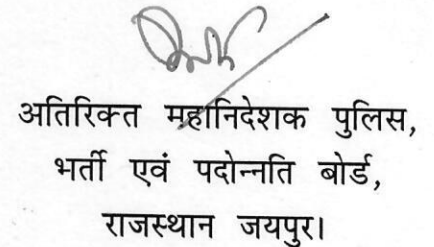 अतिरिक्त महानिदेशक पुलिस,
भर्ती एवं पदोन्नति बोर्ड,
राजस्थान जयपुर।